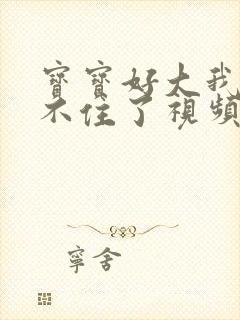 寶寶好大我
不住了視頻
寧舍